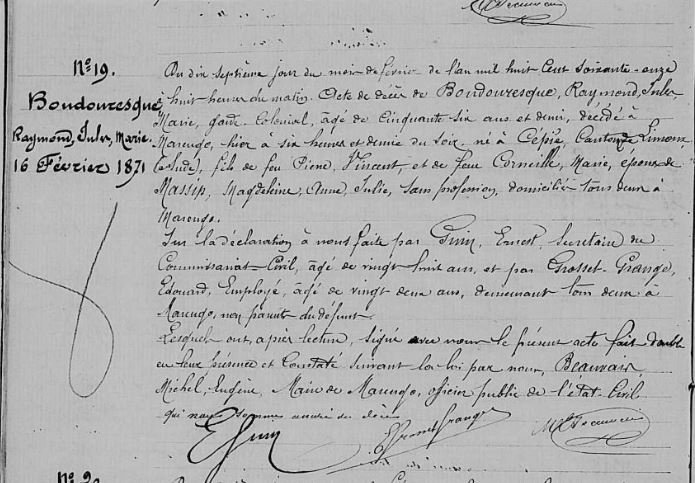 Nº 19.
Boudouresque
Raymond, Jules, Marie.
16 Février 1871
Du dix septième jour du mois de février de l'an mil huit Cent Soixante-onze
à huit heures du matin. Acte de décès de Boudouresque, Raymond, Jules,
Marie, Colonial, âgé de Cinquante six ans et demi, décédé à
Marengo, hier à six heures et demie du soir, né à Cépie, Canton de Limoux
(Aude), fils de feu Pierre, Vincent, et de feue Corneille, Marie, epoux de
Massip, Magdeleine, Anne, Julie, sans profession, domiciliés tous deux à
Marengo.
Sur la déclaration à nous faite par Ernest, Secrétaire du
Commissariat-Civil, âgé de vingt huit ans, et par Grosset-Grange,
Edouard, Employé, âgé de vingt deux ans, demeurant tous deux à
Marengo, non parents du défunt.
Lesquels ont, après lecture, signé avec nous le présent acte fait double
en leur présence et Constaté suivant la loi par nous, Beauvais,
Michel, Eugène, Maire de Marengo, officier public de l'état-Civil
qui nous sommes assuré du décès